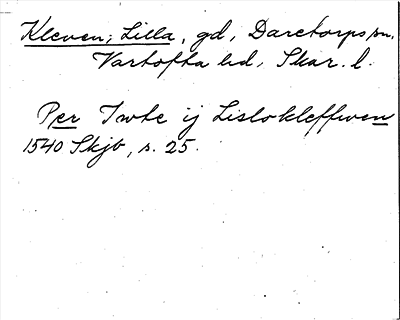 Kleven, Lilla, gd, Daretorps sn.
Vartofta hd, Skar. l.
Per Twte ij Lislokleffwen
1540 Skjb, s. 25.